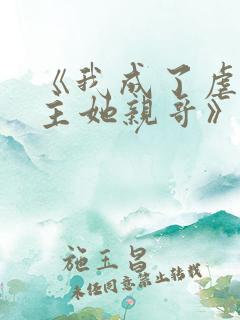 《我成了虐
主她親哥》
施玉昌
未经同意禁止转载